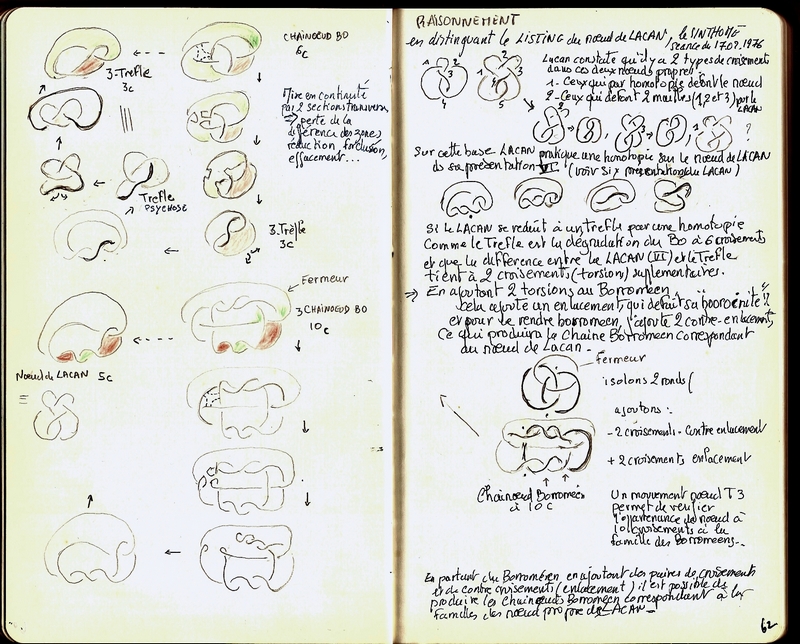 CHAINOEUD BO
6c
3-Trefle
3c
Mise en continuité
par 2 sections transvers.
⇒ perte de la
différence des zones,
réduction, forclusion,
effacement...
Trefle
PSYCHOSE
3.Trèfle
3c
Fermeur
3 CHAINOEUD BO
10c
Noeud de LACAN 5c
RAISONNEMENT
en distinguant le LISTING du noeud de LACAN, le SINTHOME
séance du 17.02.1976
Lacan constate qu'il y a 2 types de croisements
dans ces deux noeuds propres:
1- Ceux qui par homotopie défont le noeud
2- Ceux qui défont 2 mailles (1, 2 et 3) par le
LACAN
Sur cette base LACAN pratique une homotopie sur le noeud de LACAN
ds sa présentation VI (voir six présentations du LACAN)
Si le LACAN se réduit à un trefle par une homotopie
Comme le Trefle est la dégradation du Bo à 6 croisements
et que la différence entre le LACAN (VI) et le Trefle
tient à 2 croisements (torsion) suplementaires.
⇒ En ajoutant 2 torsions au Borroméen,
cela ajoute un enlacement, qui défait sa "booroénité"
et pour le rendre borroméen, j'ajoute 2 contre-enlacements,
Ce qui produira la Chaine Borroméen correspondant
du noeud de Lacan.
Fermeur
isolons 2 ronds (
ajoutons:
- 2 croisements - contre enlacement
+ 2 croisements enlacement
Chainoeud Borroméen
à 10 c
Un mouvement noeud T3
permet de vérifier
l'appartenance du noeud à
10 croisements à la
famille des Borroméens.
En partant du Borroméen en ajoutant des paires de croisements
et de contre croisements (enlacement) il est possible de
produire les Chainoeuds Borroméen correspondant à les
familles des noeud propre de LACAN
62